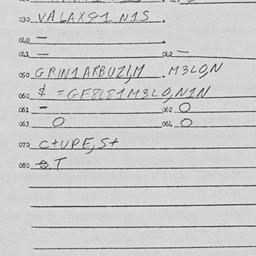 030 VALAX81 N1S.
040 –
041 – 042 –
050 GRIN1ARBUZI,M . M3LO,N
060 $ =GF8L81M3LO,N1N
061 – 062 O
063 O 064 O
070 C+UPE,S+
080 T